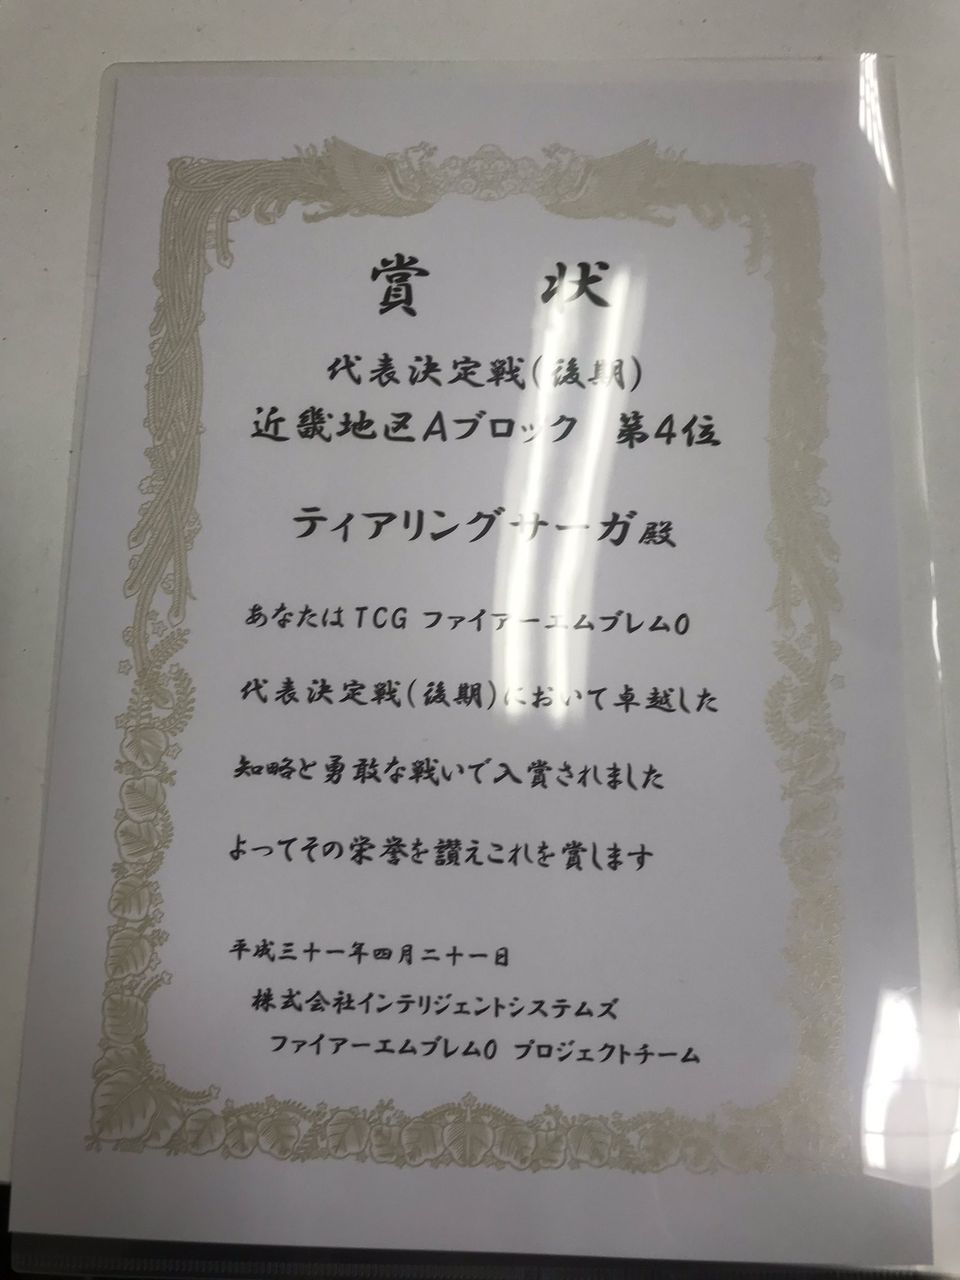 賞 状
代表決定戦(後期)
近畿地区Aブロック 第4位
ティアリングサーガ殿
あなたはTCG ファイアーエムブレム0
代表決定戦(後期)において卓越した
知略と勇敢な戦いで入賞されました
よってその栄誉を讃えこれを賞します
平成三十一年四月二十一日
株式会社インテリジェントシステムズ
ファイアーエムブレム0 プロジェクトチーム